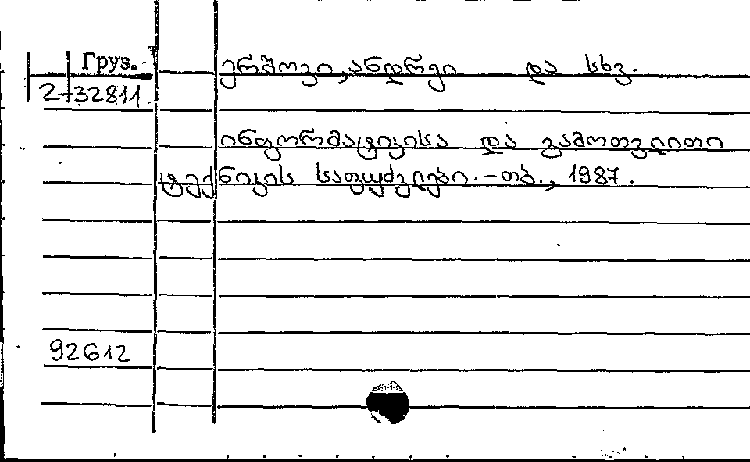 Груз.
ერშოვი, ანდრეი და სხვ.
2-32811
ინფორმატიკისა და გამოთვლითი
ტექნიკის საფუძვლები. - თბ., 1987.
92612